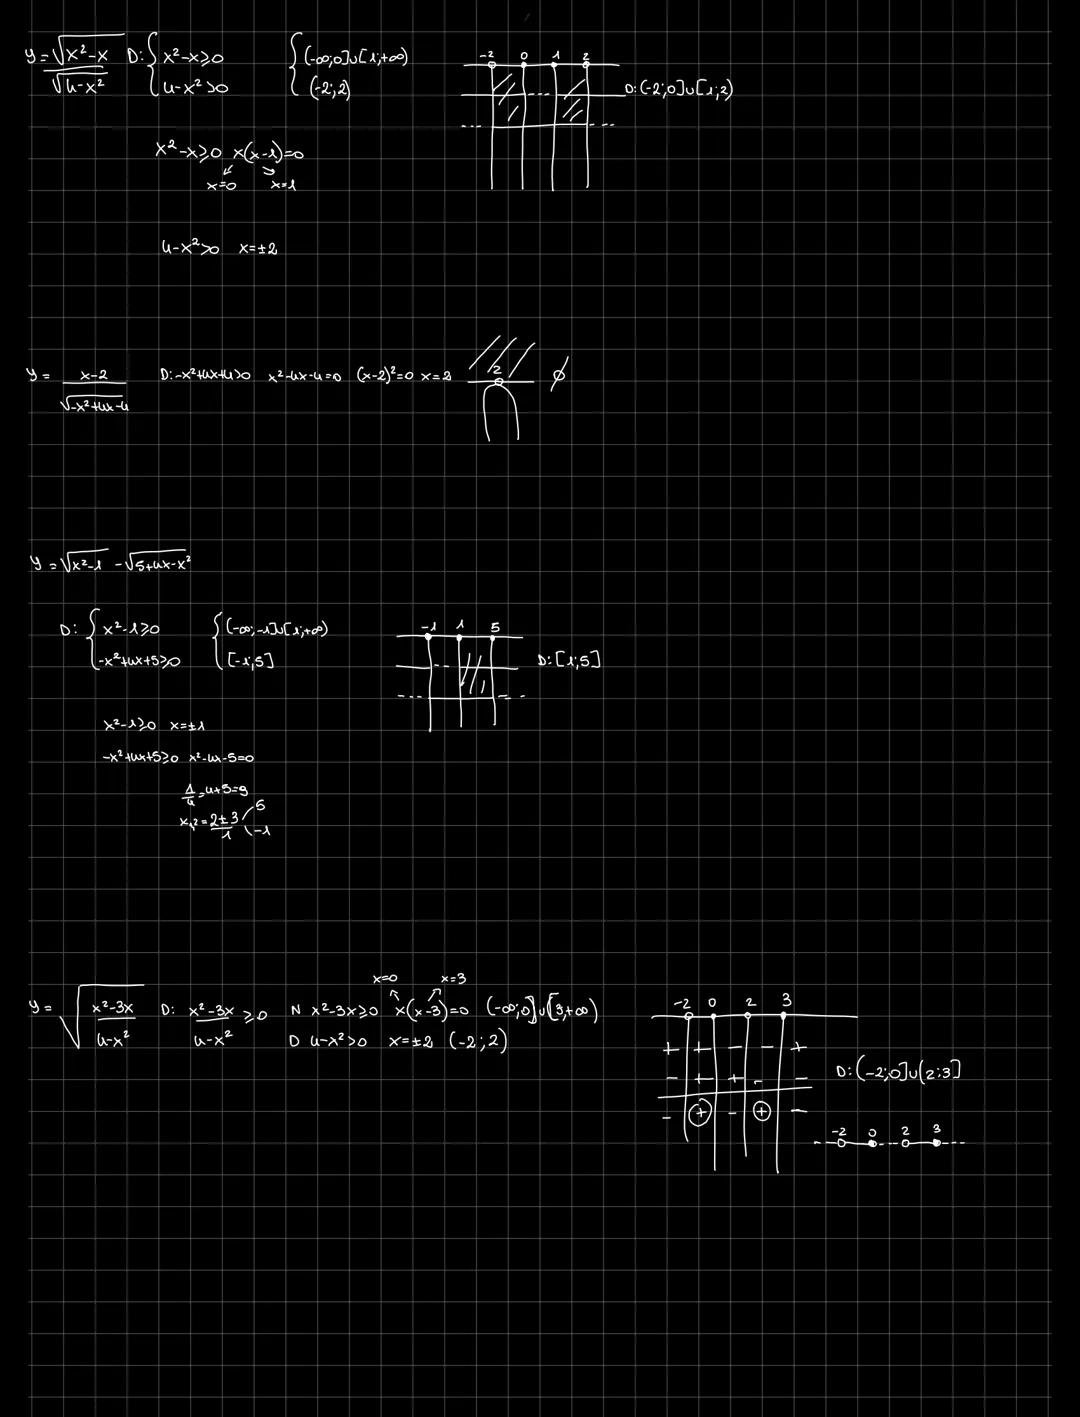 y = √(x²-x) / √(4-x²) D: { x²-x≥0 ; 4-x²>0 { (-∞;0]∪[1;+∞) ; (-2;2) -2 0 1 2 D:(-2;0]∪[1;2)
x²-x≥0 x(x-1)=0
x=0 x=1
4-x²>0 x=±2
y = (x-2) / √(-x²+4x-4) D:-x²+4x+4>0 x²-4x-4=0 (x-2)²=0 x=2 2 ∅
y = √(x²-1) - √(5+4x-x²)
D: { x²-1≥0 { (-∞;-1]∪[1;+∞) -1 1 5
-x²+4x+5≥0 [-1;5] D:[1;5]
x²-1≥0 x=±1
-x²+4x+5≥0 x²-4x-5=0
Δ/4=4+5=9
x₁,₂ = (2±3)/1 5 -1
x=0 x=3
y = √((x²-3x)/(4-x²)) D: (x²-3x)/(4-x²) ≥0 N x²-3x≥0 x(x-3)=0 (-∞;0]∪[3;+∞) -2 0 2 3
D 4-x²>0 x=±2 (-2;2)
+ + - - +
- + + - - D:(-2;0]∪(2;3]
- + - + -
-2 0 2 3